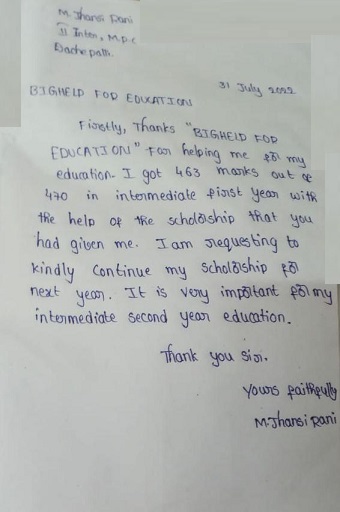 M. Jhansi Rani
II Inter, M.P.C
Dachepalli.
31 July 2022
BIGHELP FOR EDUCATION
Firstly, Thanks "BIGHELP FOR
EDUCATION" For helping me for my
education. I got 463 marks out of
470 in intermediate first year with
the help of the scholorship that you
had given me. I am requesting to
kindly continue my scholorship for
next year. It is very important for my
intermediate second year education.
Thank you sir.
Yours faithfully
M.Jhansi Rani